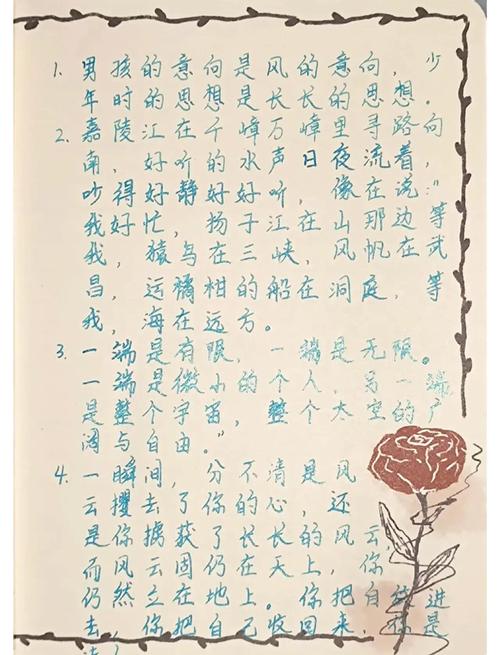 1. 男孩的意向是风的意向，少
年时的思想是长长的思想。
2. 嘉陵江在千嶂万嶂里寻路向
南，好听的水声日夜流着，
吵得好静好好听，像在说："
我好忙，扬子江在山那边等
我，猿鸟在三峡，风帆在武
昌，运橘柑的船在洞庭，等
我，海在远方。
3. 一端是有限，一端是无限。
一端是微小的个人，另一端
是整个宇宙，整个太空的广
阔与自由。"
4. 一瞬间，分不清是风还
云攫去了你的心，
是你掳获了长长的风，云
而风云固仍在天上，你
仍然立在地上。你把自
去，你把自己收回来，